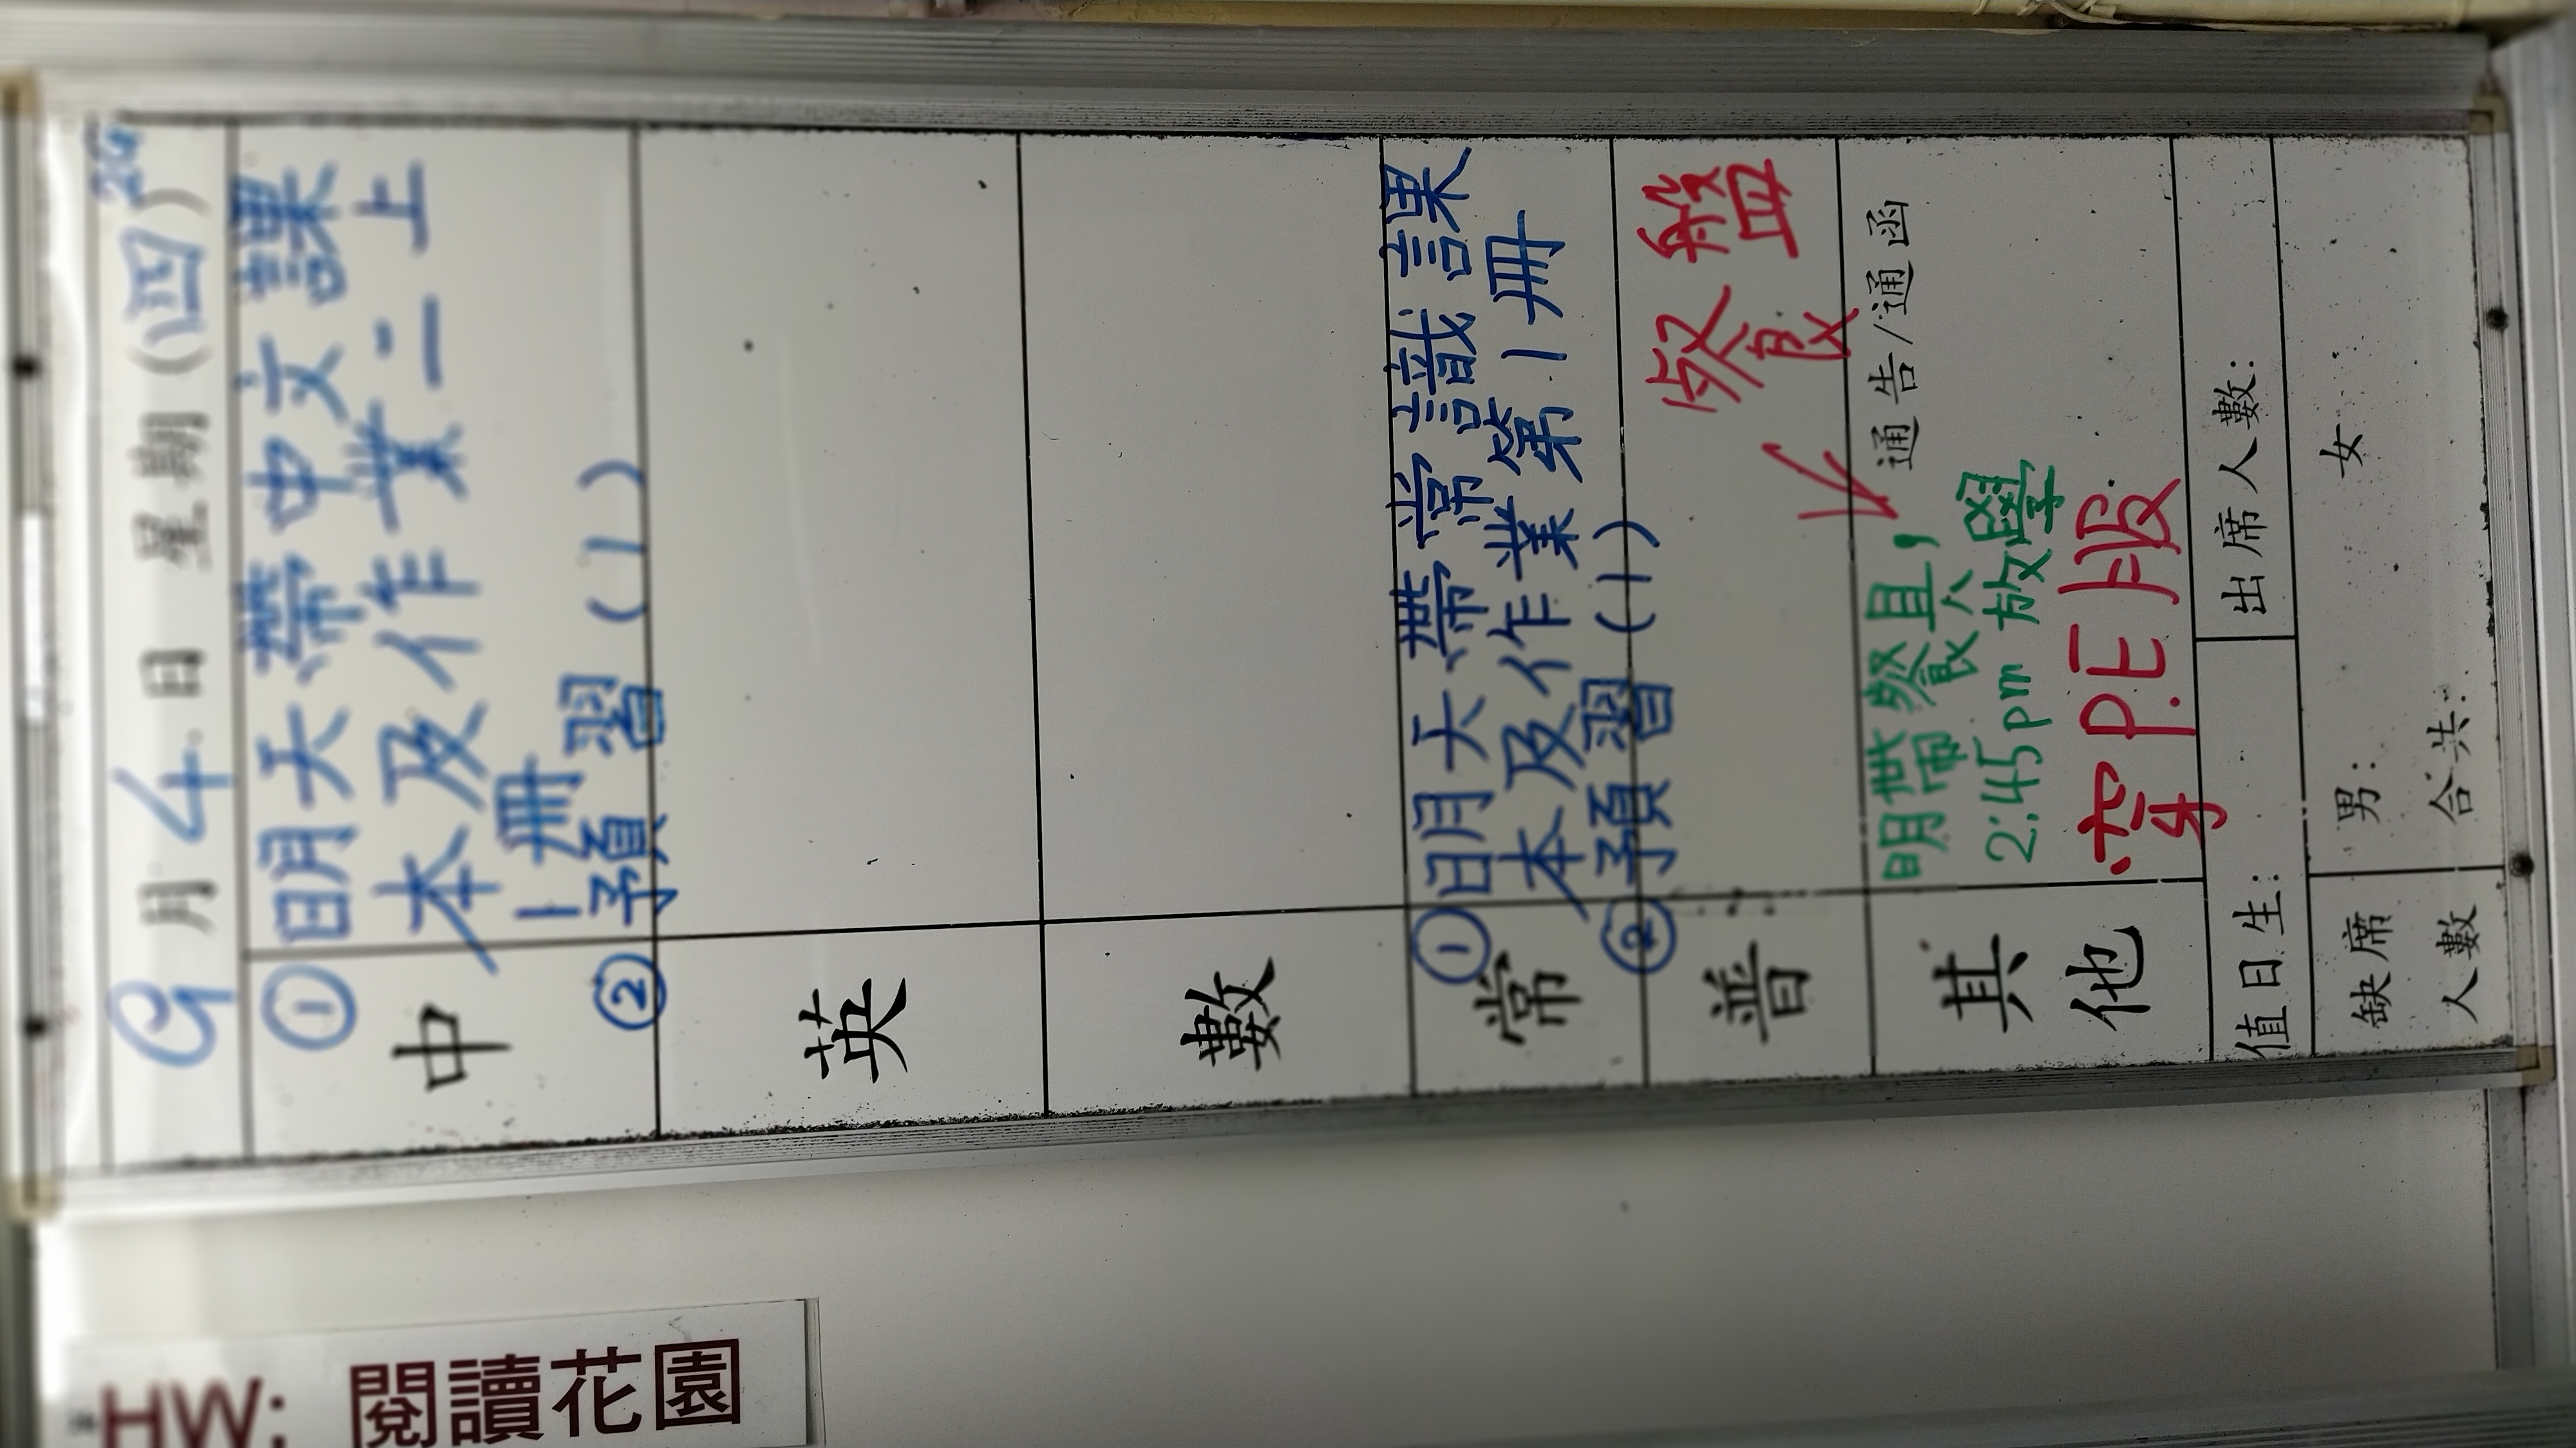 2G
9月4日 星期(四)
中
①明天帶中文課
本及作業二上
1冊
②預習(1)
英
數
常
①明天帶常識課
本及作業第1冊
②預習(1)
普
餐盤
其他
通告/通函
明帶餐具,
2:45pm放學
穿P.E服
值日生:
出席人數:
缺席人數
男:
女
合共:
HW: 閱讀花園